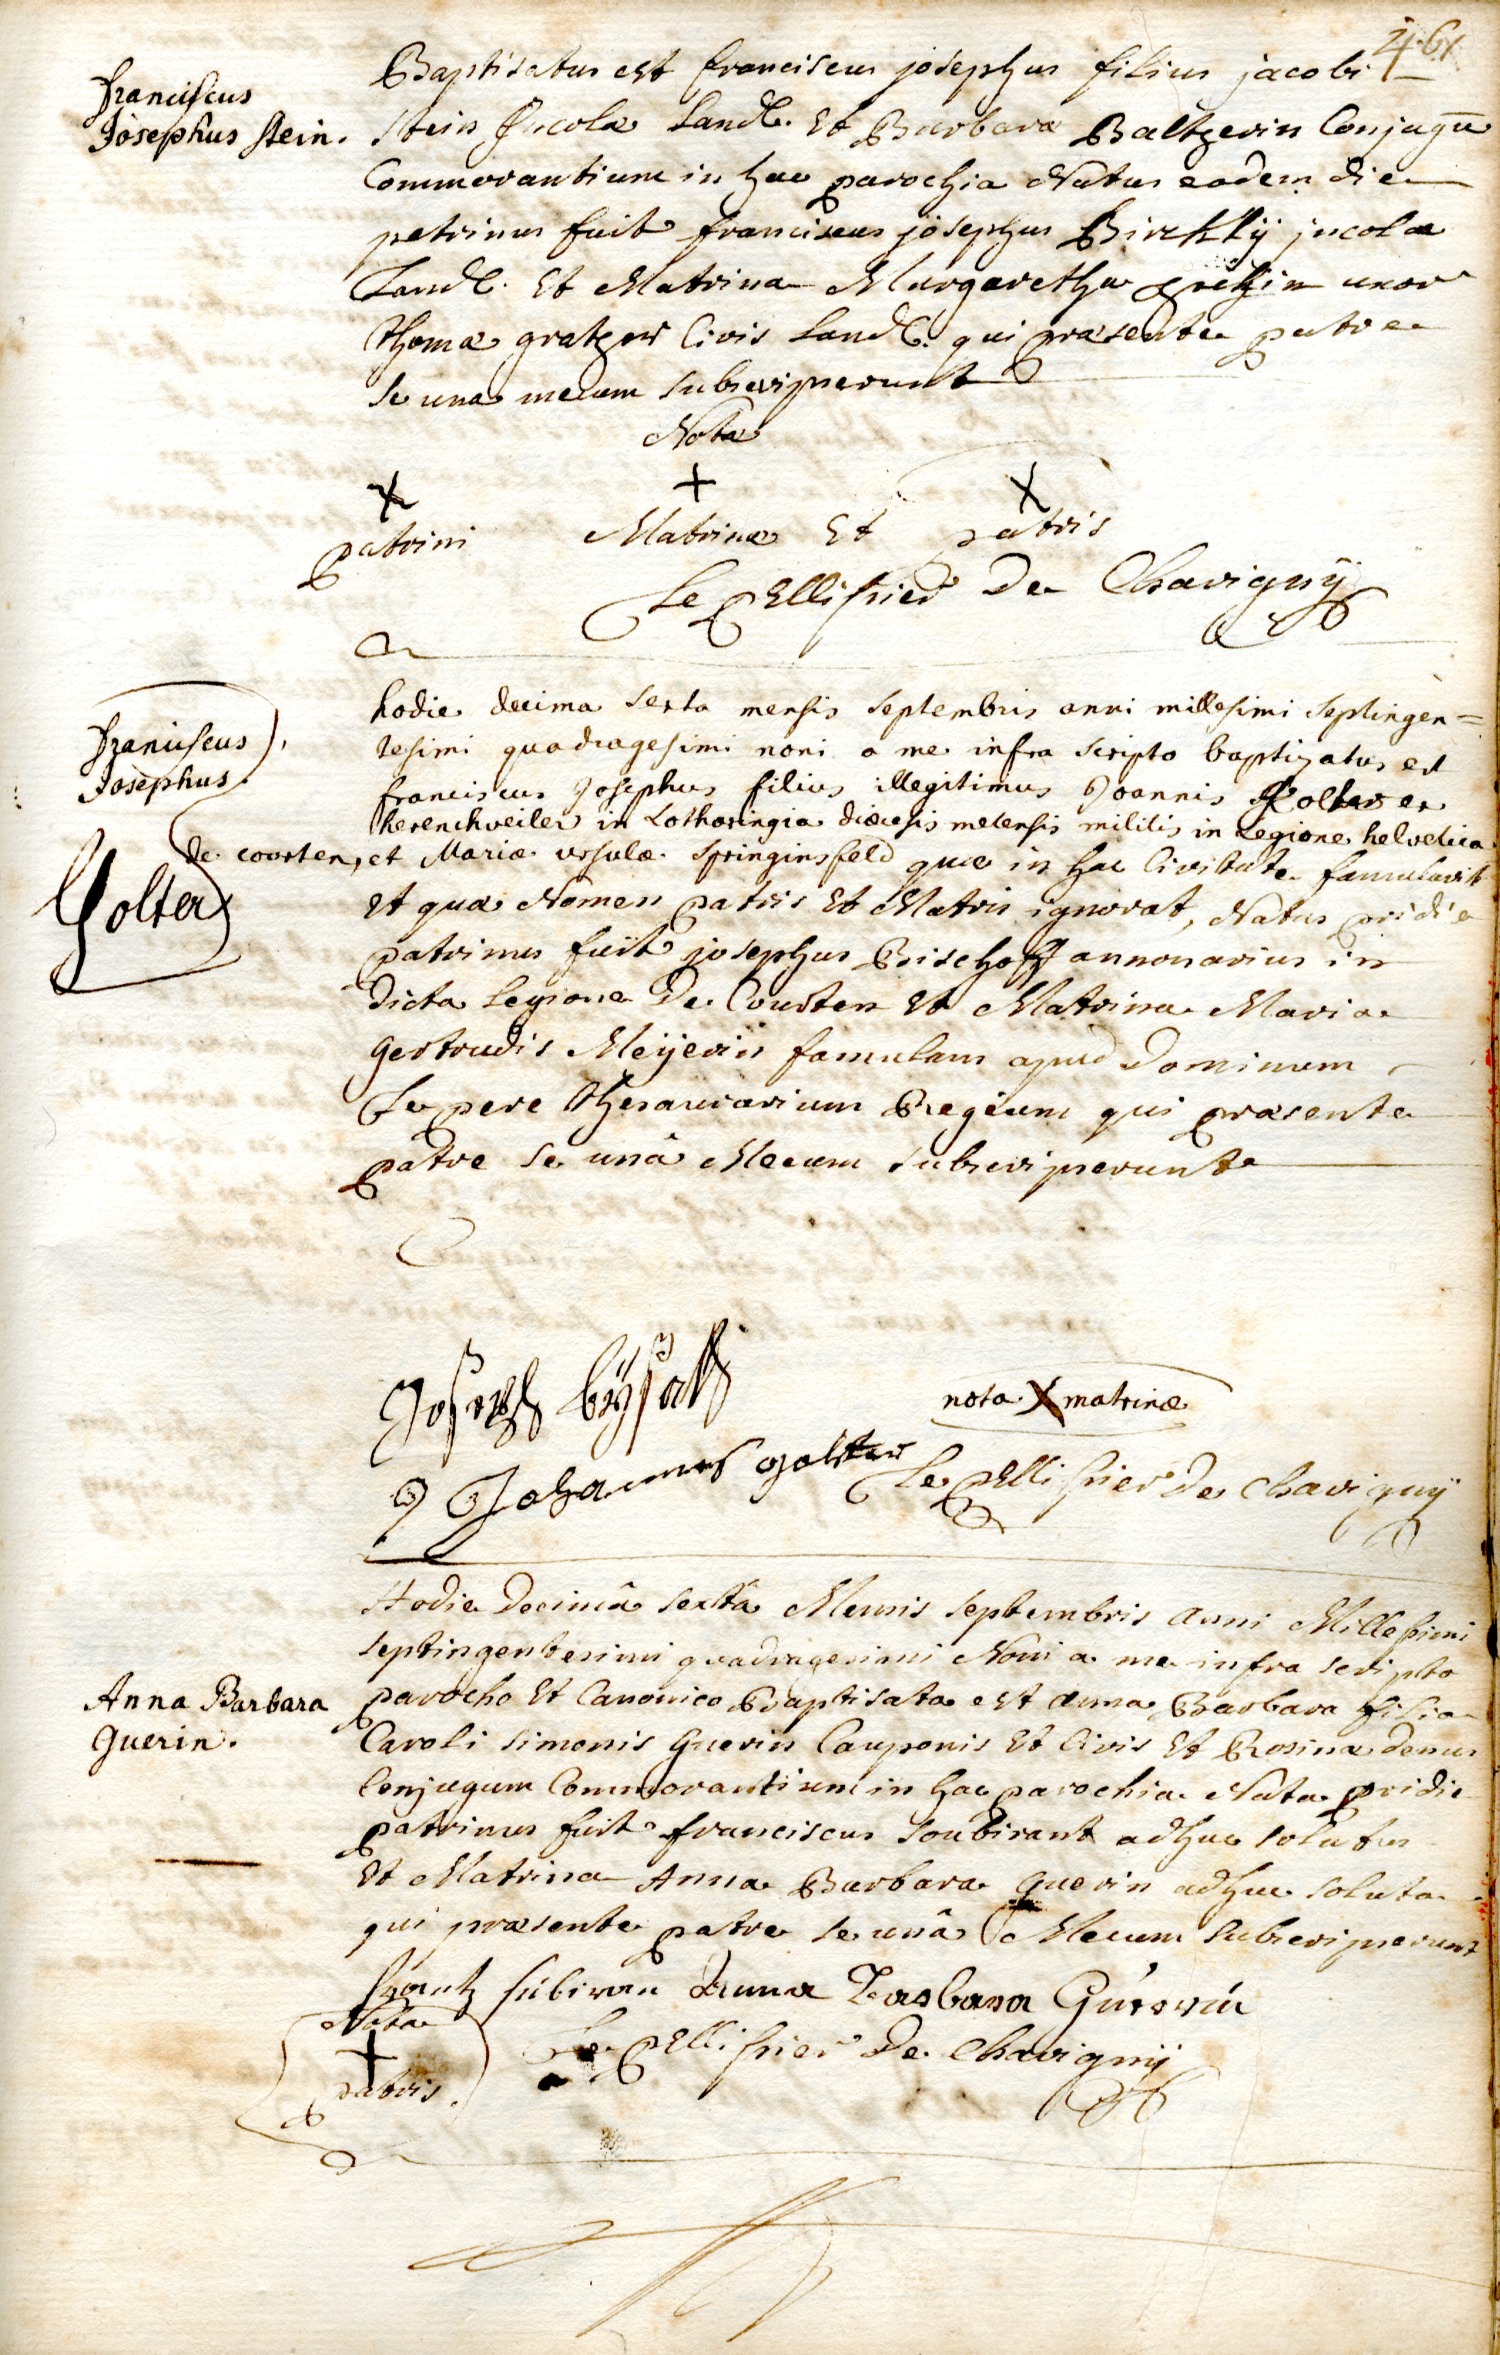 461
Baptisatus est franciscus josephus filius jacobi
franciscus
Josephus stein.
stein Incolæ Land. Et Barbaræ Baltzerin Conjugū
Commorantium in hac parochia Natus eadem die
patrinus fuit franciscus josephus Bircklÿ jncolæ
Land. Et Matrina Margaretha uxor
thomæ gratzer Civis Land. qui præsente patre
se una mecum subscripserunt
Nota
x + x
patrini Matrinæ Et patris
Le Pellissier De Chavignÿ
hodie decima sexta mensis septembris anni millesimi septingen=
tesimi quadragesimi noni a me infra scripto baptizatus est
franciscus
Josephus
Golter
franciscus Josephus filius illegitimus Joannis Golter ex
herenchveiler in Lotharingia diœcesis metensis militis in Legione helvetica
de courten, et Mariæ ursulæ springinsfeld quæ in hac Civitate famulavit
et quæ Nomen patris Et Matris ignorat, Natus pridie
patrinus fuit josephus Bischoff annonarius in
dicta Legione De Courten Et Matrina Maria
Gertrudis Meÿerin famulans apud Dominum
Le pere thesaurarium Regium qui præsente
patre se unâ Mecum subscripserunt
Joseph bÿschoff
nota X matrinæ
Johannes golter Le Pellissier De Chavignÿ
Hodie Decimâ sextâ Mensis septembris anni Millesimi
septingentesimi quadragesimi Noni a me infra scripto
Anna Barbara
Guerin.
parocho Et Canonico Baptisata est anna Barbara filia
Caroli simonis Guerin Cauponis Et Civis Et Rosinæ
Conjugum Commorantium in hac parochia Nata pridie
patrinus fuit franciscus soubirant adhuc solutus
Et Matrina Anna Barbara Guerin adhuc soluta
qui præsente patre se unâ Mecum subscripserunt
frantz Anna Barbara Guerin
Nota
+
patris.
Le Pellissier De Chavignÿ